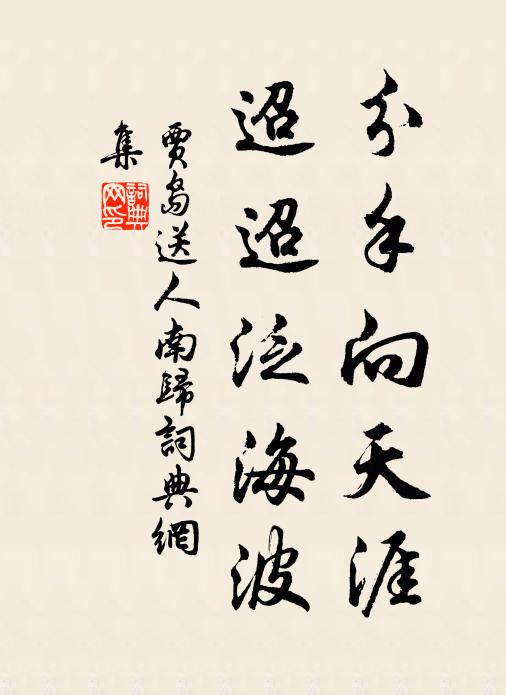 分手向天涯
迢迢泛海波
賈島送人南歸詞典網
集
詞典
网印